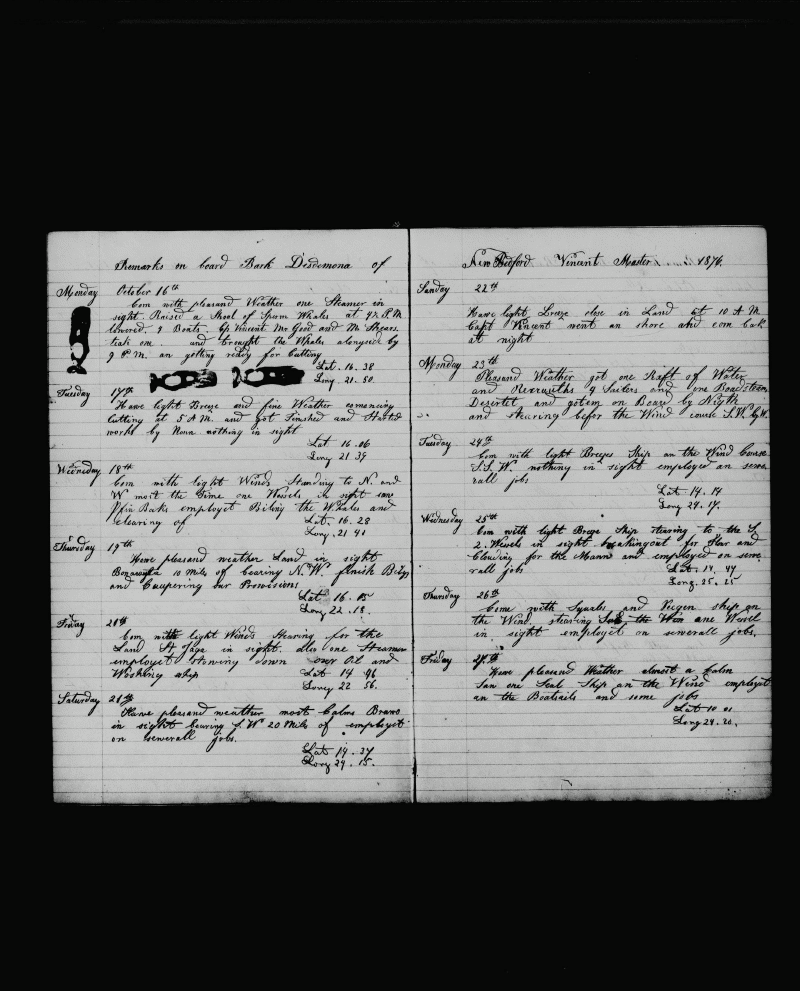 Remarks on board Bark Desdemona of
Monday October 16th
Com with pleasand Weather one Steamer in
sight. Raised a Shool of Sparm Whales at 4½ P.M
lowered. 4 Boats. Cp Vincent Mr Good and Mr
and brought the Whales alongside by
9 P.M. an gotting ready for Cutting
Lat. 16. 38
Long. 21. 50.
Tuesday 17th
Have light Breze and fine Weather comencing
Cutting at 5 A.M. and got Finshed and Started
works by Noon nothing in sight
Lat 16. 06
Long 21 39
Wednesday 18th
Com with light Winds Standing to N. and
W most the Time one Vessels in sight
Bark employet Biling the Whales and
clearing of
Lat. 16. 28
Long. 21 41
Thursday 19th
Have pleasand weather Land in sight
10 Miles of bearing N. W. finish
and Coupering our Provisions
Lat. 16. 05
Long 22. 18.
Friday 20th
Com with light Winds Stearing for the
Land St Jago in sight. also one Steamer
employet stowing down over Oil and
Woshing Ship
Lat 14 46
Long 22 56.
Saturday 21th
Have pleasand weather most Calms Brawo
in sight bearing S. W. 20 Mile of employet
on sewerall jobs.
Lat 14. 37
Long 24. 15.
New Bedford Vincent Master 1876.
Sunday 22th
Have light Breze close in Land at 10 A.M.
Capt Vincent went an shore and com bak
at night
Monday 23th
Pleasand Weather got one Raft of Water
and Recruiths 4 Sailers and one Boadsteere
Desertet and gotem on Board by Nigth
and stearing befor the Wind course S. W. by W.
Tuesday 24th
Com with light Breezes Ship an the Wind Course
S.S. W. nothing in sight employed an sewe
rall jobs
Lat 14. 14
Long 24. 17.
Wednesday 25th
Com with light Breze Ship stearing to the S.
2. Wessels in sight breakingout for Flour and
Clouding for the Mann and employed on sewe
rall jobs
Lat. 14. 47
Long. 25. 25
Thursday 26th
Come with Squals and Reigen ship an
the Wind. stearing one Wessel
in sight employet on sewerall jobs.
Friday 27th
Have pleasand Weather almost a Calm
San one Seal Ship an the Wind employet
an the Boatsails and some jobs
Lat 10 01
Long 24. 20.